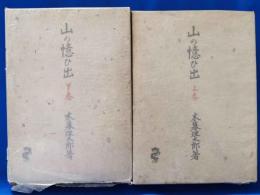 山の憶ひ出
下巻
木暮理太郎著
山の憶ひ出
上巻
木暮理太郎著